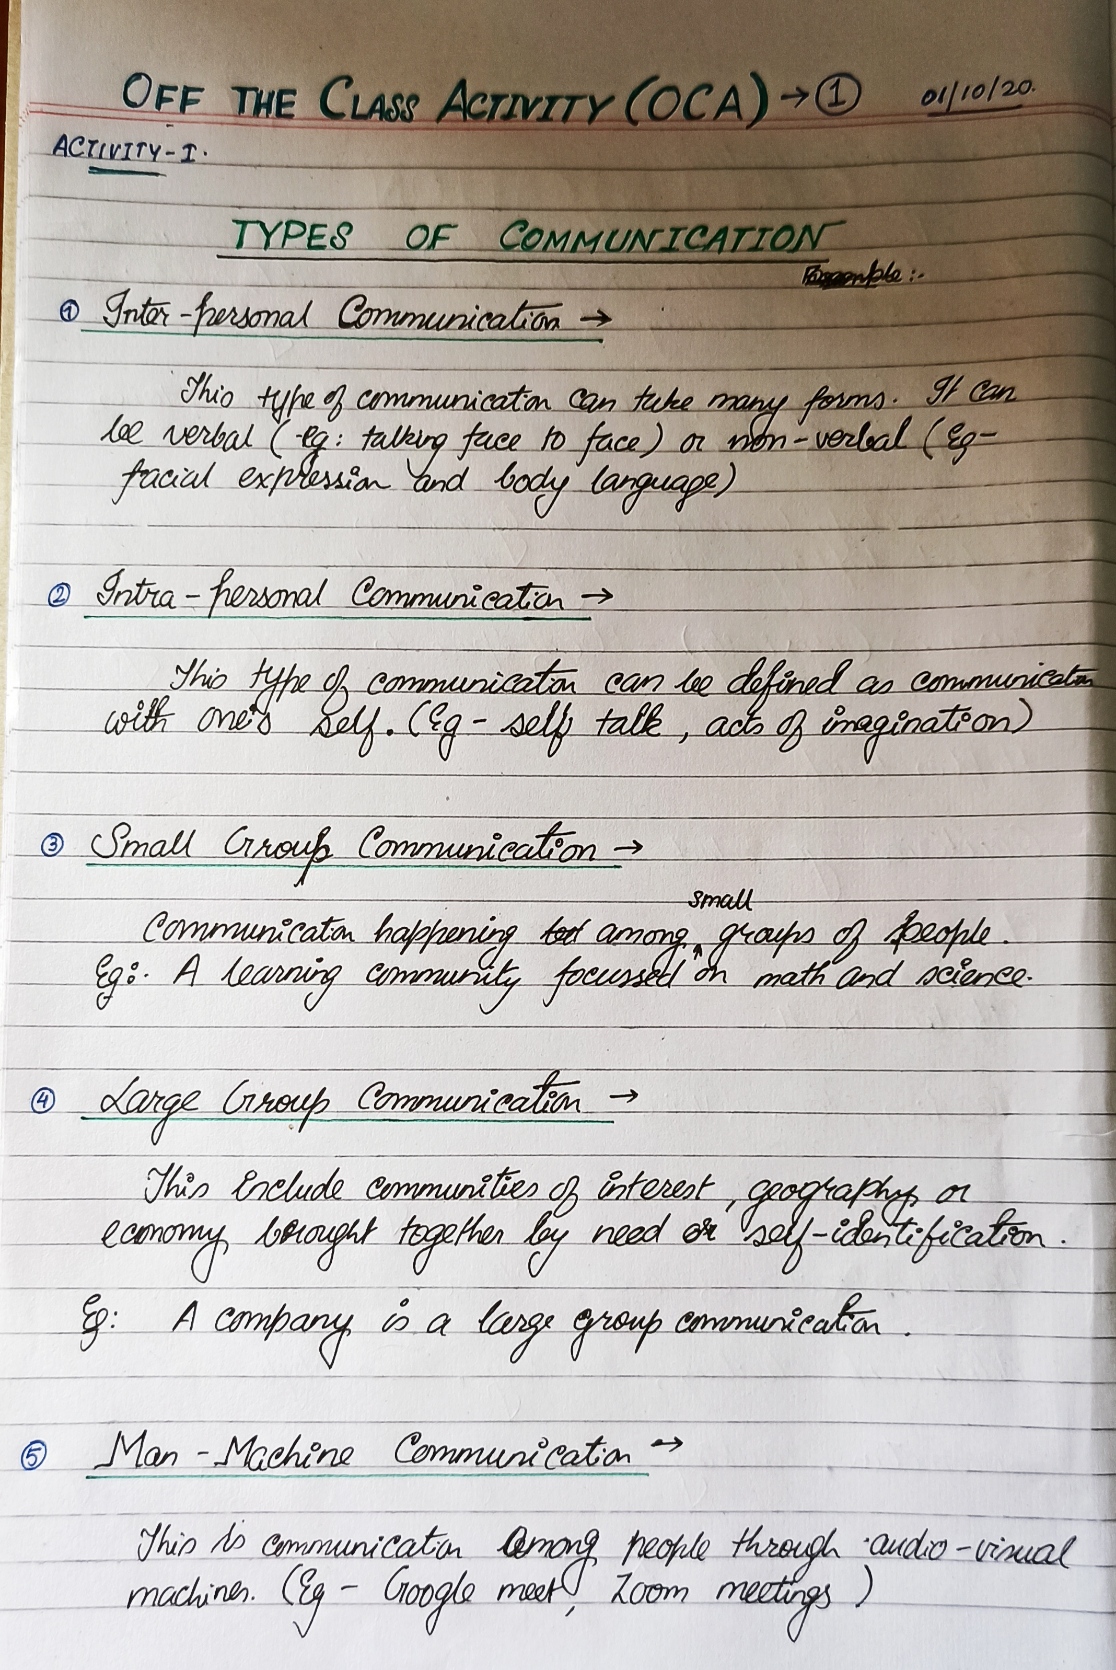 OFF THE CLASS ACTIVITY (OCA) → ① 01/10/20.
ACTIVITY-I.
TYPES OF COMMUNICATION
Example:-
① Inter-personal Communication →
This type of communication can take many forms. It can
be verbal (eg: talking face to face) or non-verbal (Eg-
facial expression and body language)
② Intra-personal Communication →
This type of communication can be defined as communication
with one's self. (Eg - self talk, acts of imagination)
③ Small Group Communication →
small
Communication happening among groups of people.
Eg:. A learning community focussed on math and science.
④ Large Group Communication →
This include communities of interest, geography or
economy brought together by need or self-identification.
Eg: A company is a large group communication.
⑤ Man-Machine Communication →
This is communication among people through audio-visual
machines. (Eg - Google meet, Zoom meetings)